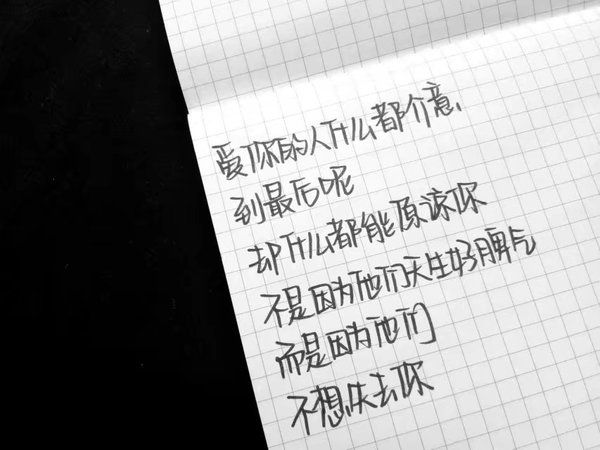 爱你的人什么都介意，
到最后呢
却什么都能原谅你
不是因为他们天生好脾气
而是因为他们
不想失去你